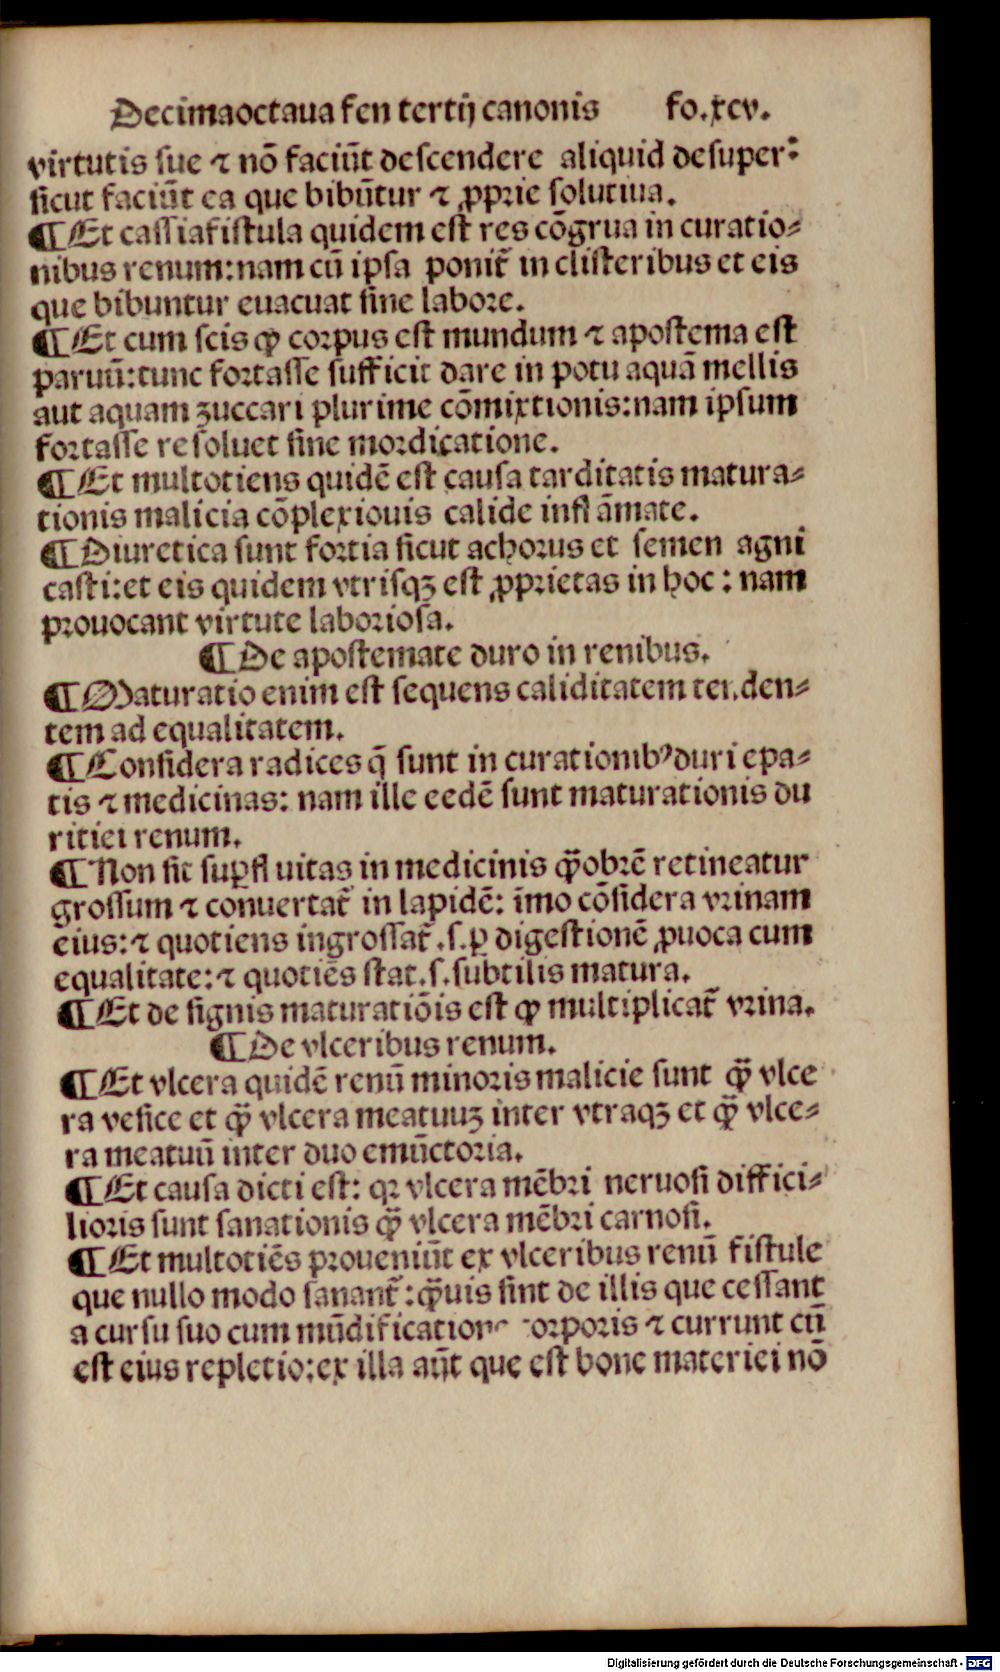 Decimaoctaua fen tertij canonis fo.xcv.
virtutis sue ⁊ nō faciūt descendere aliquid desuper:
sicut faciūt ea que bibūtur ⁊ ꝓprie solutiua.
¶Et cassiafistula quidem est res cōgrua in curatio⸗
nibus renum:nam cū ipsa ponit̃ in clisteribus et eis
que bibuntur euacuat sine labore.
¶Et cum scis ꝙ corpus est mundum ⁊ apostema est
paruū:tunc fortasse sufficit dare in potu aquā mellis
aut aquam zuccari plurime cōmixtionis:nam ipsum
fortasse resoluet sine mordicatione.
¶Et multotiens quidē est causa tarditatis matura⸗
tionis malicia cōplexiouis calide inflāmate.
¶Diuretica sunt fortia sicut achorus et semen agni
casti:et eis quidem vtrisqꝫ est ꝓprietas in hoc: nam
prouocant virtute laboriosa.
¶De apostemate duro in renibus.
¶Maturatio enim est sequens caliditatem tenden⸗
tem ad equalitatem.
¶Considera radices q̄ sunt in curationibꝰ duri epa⸗
tis ⁊ medicinas: nam ille eedē sunt maturationis du
ritiei renum.
¶Non sit suꝑfluitas in medicinis ꝙ̄obrē retineatur
grossum ⁊ conuertat̃ in lapidē: īmo cōsidera vrinam
eius:⁊ quotiens ingrossat̃.s.ꝑ digestionē ꝓuoca cum
equalitate:⁊ quotiēs stat.s.subtilis matura.
¶Et de signis maturatiōis est ꝙ multiplicat̃ vrina.
¶De vlceribus renum.
¶Et vlcera quidē renū minoris malicie sunt ꝙ̄ vlce
ra vesice et ꝙ̄ vlcera meatuuꝫ inter vtraqꝫ et ꝙ̄ vlce⸗
ra meatuū inter duo emūctoria.
¶Et causa dicti est: qꝛ vlcera mēbri neruosi diffici⸗
lioris sunt sanationis ꝙ̄ vlcera mēbri carnosi.
¶Et multotiēs proueniūt ex vlceribus renū fistule
que nullo modo sanant̃:ꝙ̄uis sint de illis que cessant
a cursu suo cum mūdificatione corporis ⁊ currunt cū
est eius repletio:ex illa aūt que est bone materiei nō
Digitalisierung gefördert durch die Deutsche Forschungsgemeinschaft - DFG